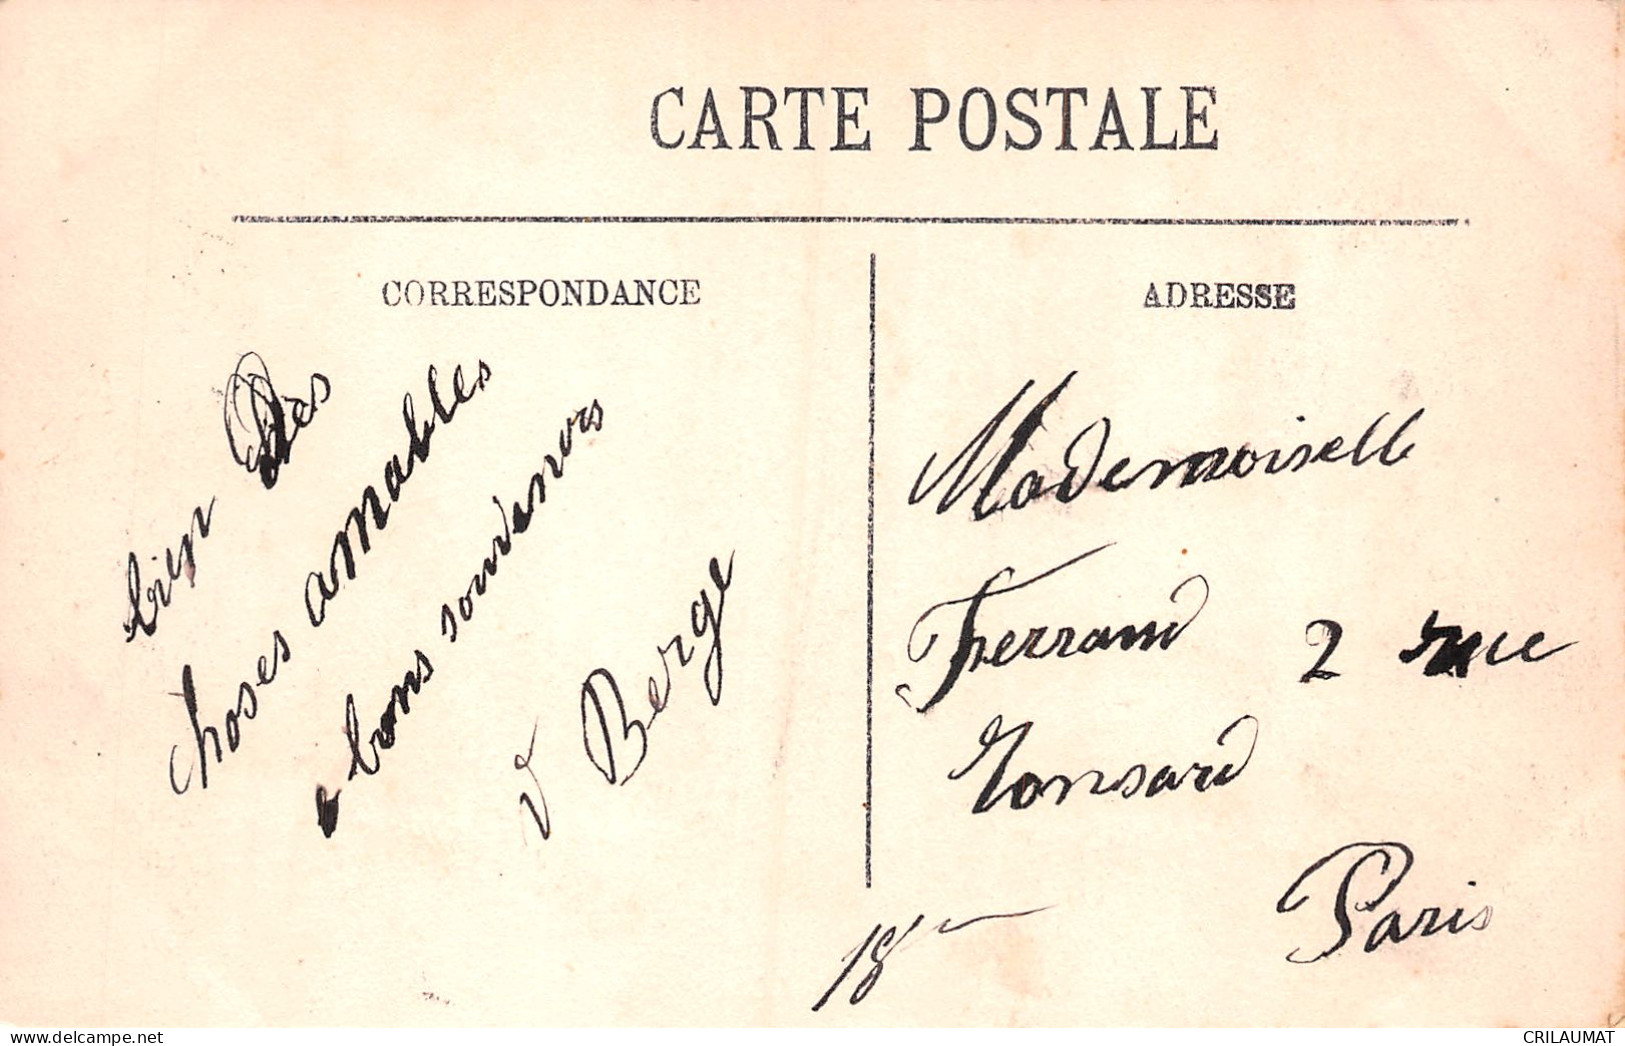 CARTE POSTALE
CORRESPONDANCE
bien Des
choses amables
e bons souvenors
V Berge
ADRESSE
Mademoiselle
Ferrand 2 rue
Ronsard
Paris
18
CRILAUMAT